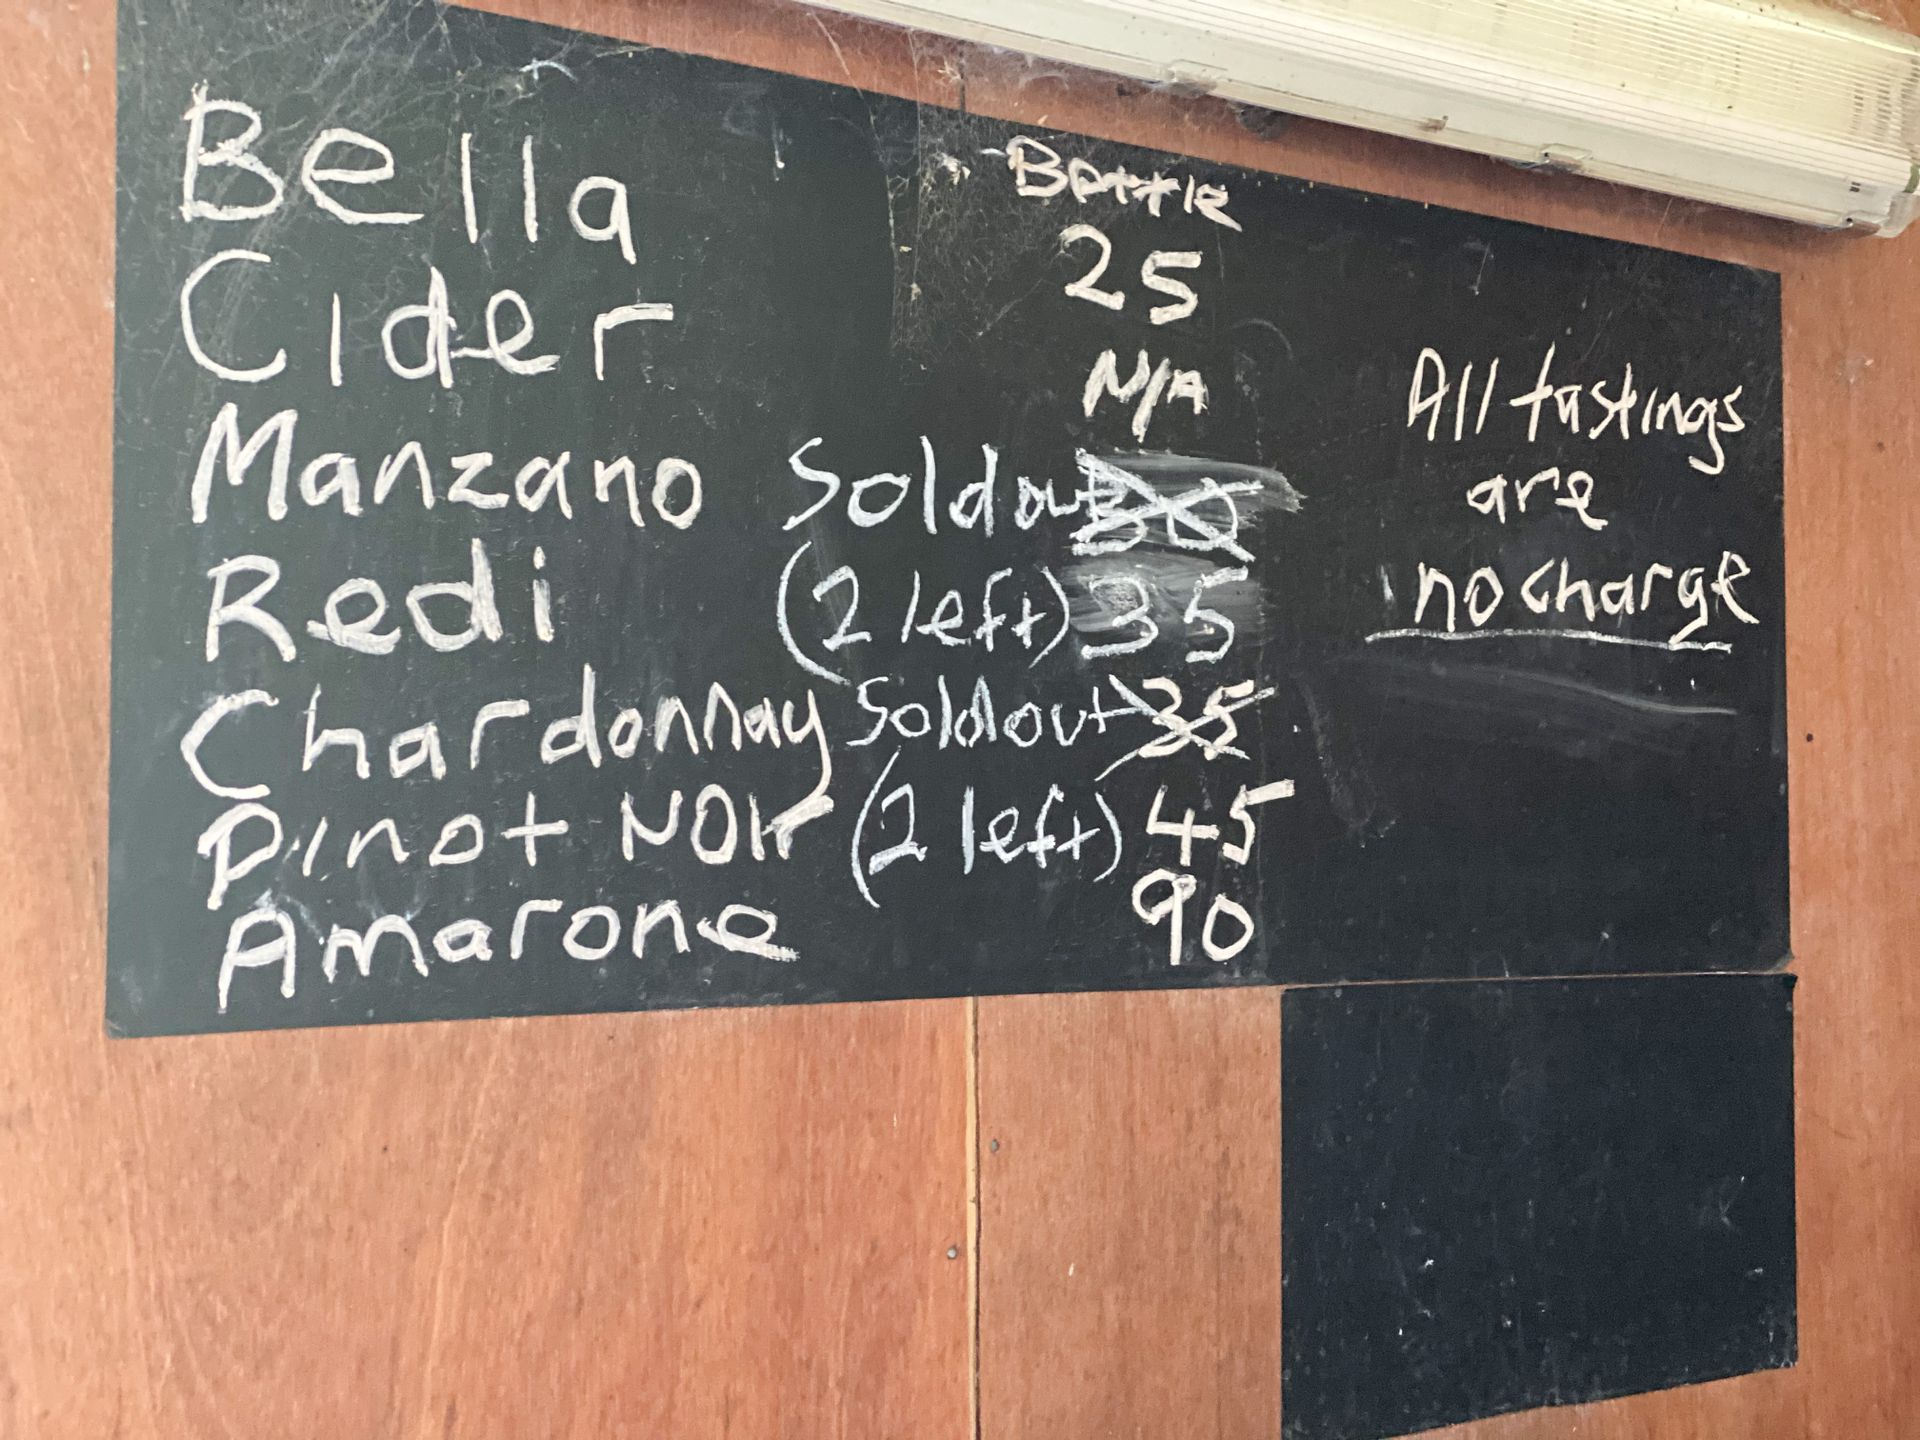 Bottle
Bella 25
Cider N/A
Manzano Sold out 30
Redi (2 left) 35
Chardonnay Sold out 35
Pinot Noir (2 left) 45
Amarone 90
All tastings
are
no charge